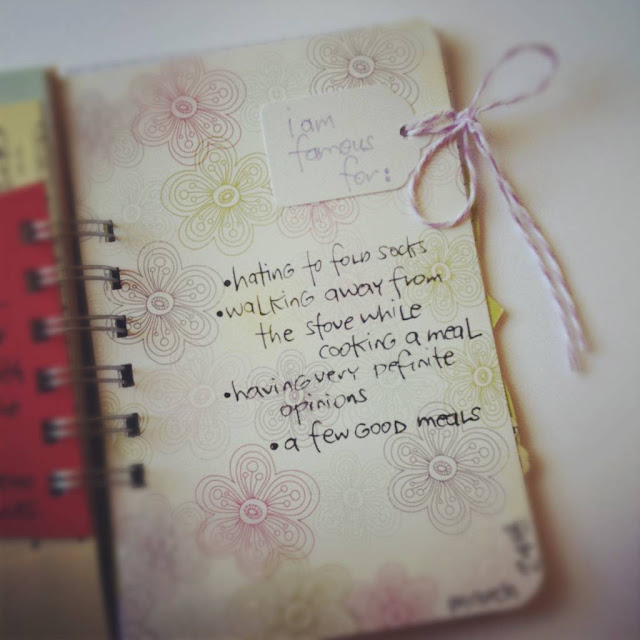 i am
famous
for:
•hating to fold socks
•walking away from
the stove while
cooking a meal
•having very definite
opinions
•a few good meals
march